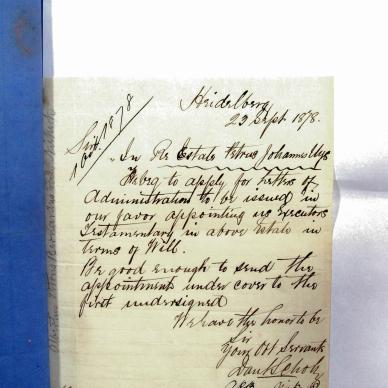 Heidelberg
23 Sept 1878.
Sir
In Re Estate Petrus Johannes Uys
We beg to apply for Letters of
Administration to be issued in
our favor appointing us Executors
Testamentary in above Estate in
terms of Will.
Be good enough to send the
appointment under cover to the
first undersigned
We have the honor to be
Sir
Your Obt Servants